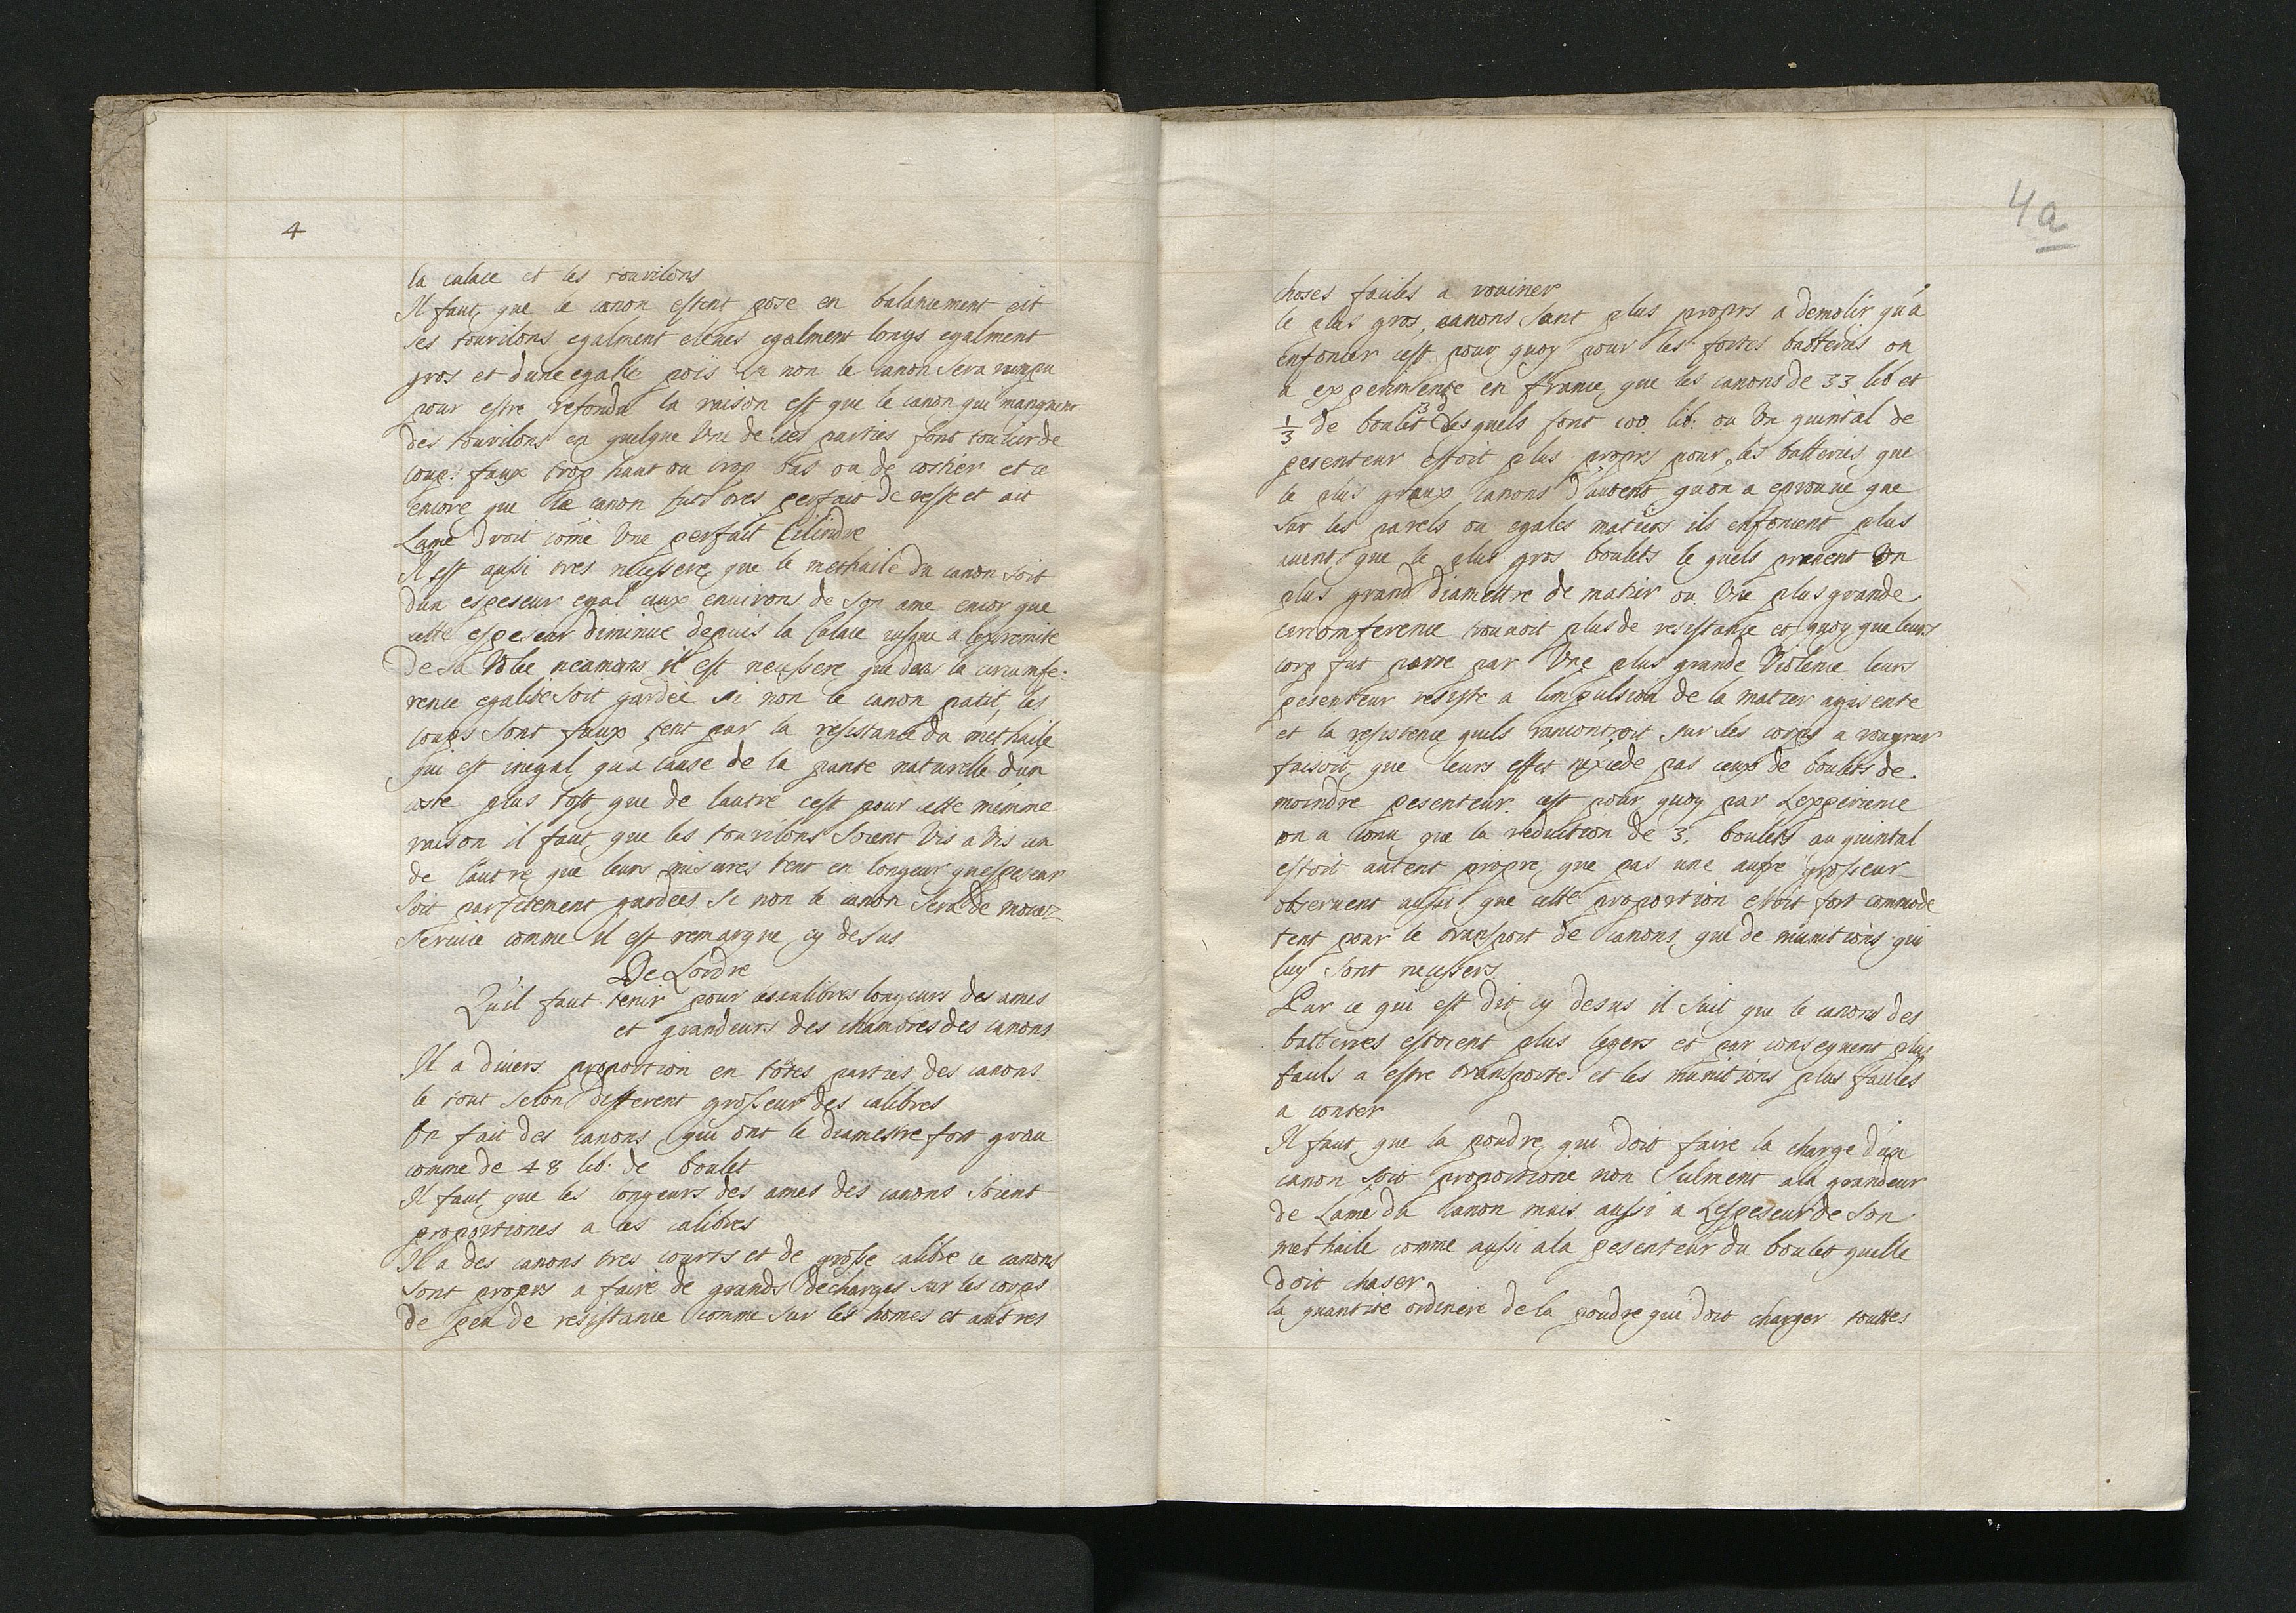 4
la culace et les tourilons
Il faut que le canon estent pose en balancement eit
ses tourilons egalment eleves egalment longs egalment
gros et dune egalle pois si non le canon sera rompu
pour estre refondu la raison est que le canon qui manquent
des tourilons en quelque une de ses parties font tousir de
coup: faux trop haut ou trop bas ou de costier et ce
encore que le canon fut tres perfait de reste et ait
Lame droit come une perfait Cilindre
Il est aussi tres necessere que le methaile du canon soit
dun espeseur egal aux environs de son ame encor que
cette espeseur diminue depuis la Culace iusque a lextremite
de sa Volee neamoins il est necessere que dans la circumfe-
rence egalite soit gardée si non le canon patit, les
coups sont faux tent par la resistance du methaile
qui est inegal qua cause de la pante naturelle d'un
coste plus tost que de lautre cest pour cette memme
raison il faut que les tourilons soient Vis a Vis un
de l'autre que leurs misures tent en longeur quespeseur
soit parfitement gardées si non le canon sera de mouez
servise comme il est remarque cy desus
De Lordre
Qu'il faut tenir pour les calibres longeurs des ames
et grandeurs des chambres des canons
Il a divers proportion en totes parties des canons
le tout selon different grosseur des calibres
On fait des canons qui ont le diamestre fort grau
comme de 48 lib: de boulet
Il faut que les longeurs des ames des canons soient
proportiones a ces calibres
Il a des canons tres courts et de grosse calibre ce canons
sont proprs a faire de grands decharges sur les corps
de peu de resistance comme sur les homes et autres
4a
choses faciles a rouiner
le plus gros canons sont plus proprs a demolir qu'a
enfoncer cest pour quoy pour les fortes batteries on
a experimente en france que les canons de 33 lib et
1/3 de boulet 3 desquels font 100 lib: ou Un quintal de
pesenteur estoit plus proprs pour les batteries que
le plus graux canons d'autent quon a eprouue que
sur les parels ou egales matiers ils enfoncent plus
auent que le plus gros boulets le quels prenent Un
plus grand diamettre de matier ou Une plus grande
circomference trouvoit plus de resistance et quoy que leurs
corp fut porte par Une plus grande Violence leurs
pesenteur resiste a limpulsion de la matier agisente
et la resistence quils rancontroit sur les corps a rompuer
faisoit que leurs effet nexcede pas ceux de boulets de
moindre pesenteur cest pour quoy par Lexperience
on a conu que la reduction de 3. boulets au quintal
estoit autent propre que pas une autre grosseur
observent aussi que cette proportion etoit fort commode
tent pour le transport de canons que de munitions qui
luy sont necessers
Par ce qui est dit cy desus il suit que le canons des
batteries estoient plus legers et par consequent plus
facils a estre transportes et les munitions plus faciles
a conter
Il faut que la poudre qui doit faire la charge d'un
canon soit proportione non sulment ala grandeur
de Lame du canon mais aussi a Lespeseur de son
methaile comme aussi ala pesenteur du boulet quelle
doit chaser
la quantité ordinere de la poudre qui doit charger touttes